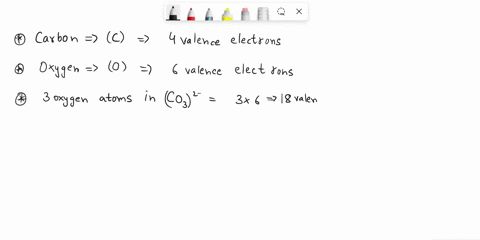 * Carbon => (C) => 4 valence electrons
* Oxygen => (O) => 6 valence electrons
* 3 oxygen atoms in (CO₃)²⁻ = 3 x 6 => 18 valen